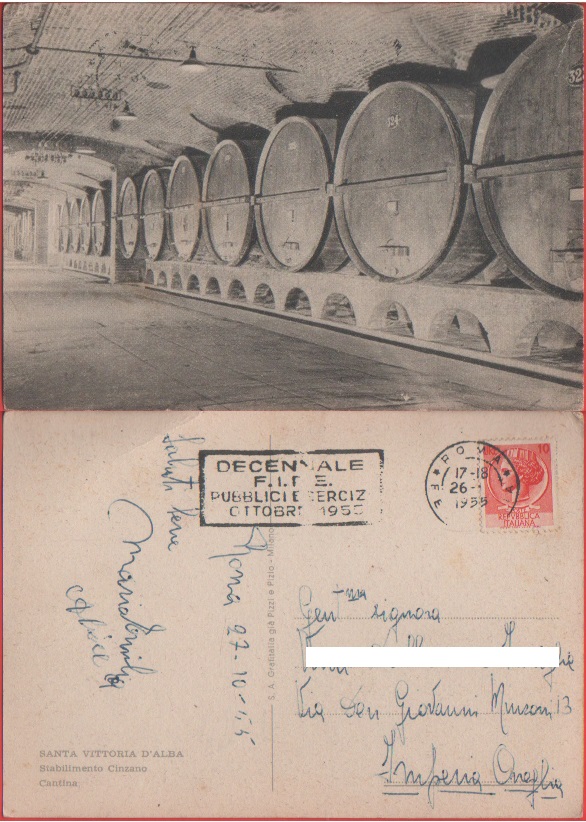 324
DECENNALE
F.I.P.E.
PUBBLICI ESERCIZ
OTTOBRE 1955
ROMA
17-18
26
1955
FE
10
REPVBBLICA
ITALIANA
Saluti
Maria Emilia
Roma 27-10-55
S. A. Grafitalia già Pizzi e Pizio - Milano
Gent ma signora
Via San Giovanni 13
Imperia Oneglia
SANTA VITTORIA D'ALBA
Stabilimento Cinzano
Cantina